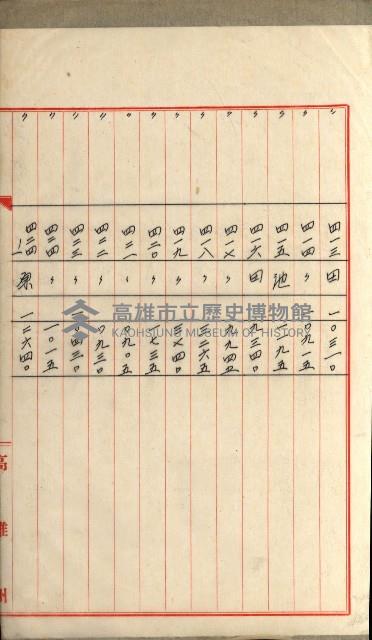 〃 四一三 田 一〇三一〇
〃 四一四 〃 〇九一五
〃 四一五 池 九五
〃 四一六 田 九三四〇
〃 四一七 〃 九九四五
〃 四一八 〃 三二六五
〃 四一九 〃 三七四〇
〃 四二〇 〃 七三五
〃 四二一 〃 〇九〇五
〃 四二二 〃 〇九三〇
〃 四二三 〃 一〇四三〇
〃 四二四 〃 一〇一五
〃 四二四ノ一 原 一二六四〇
高雄州
高雄市立歷史博物館
KAOHSIUNG MUSEUM OF HISTORY